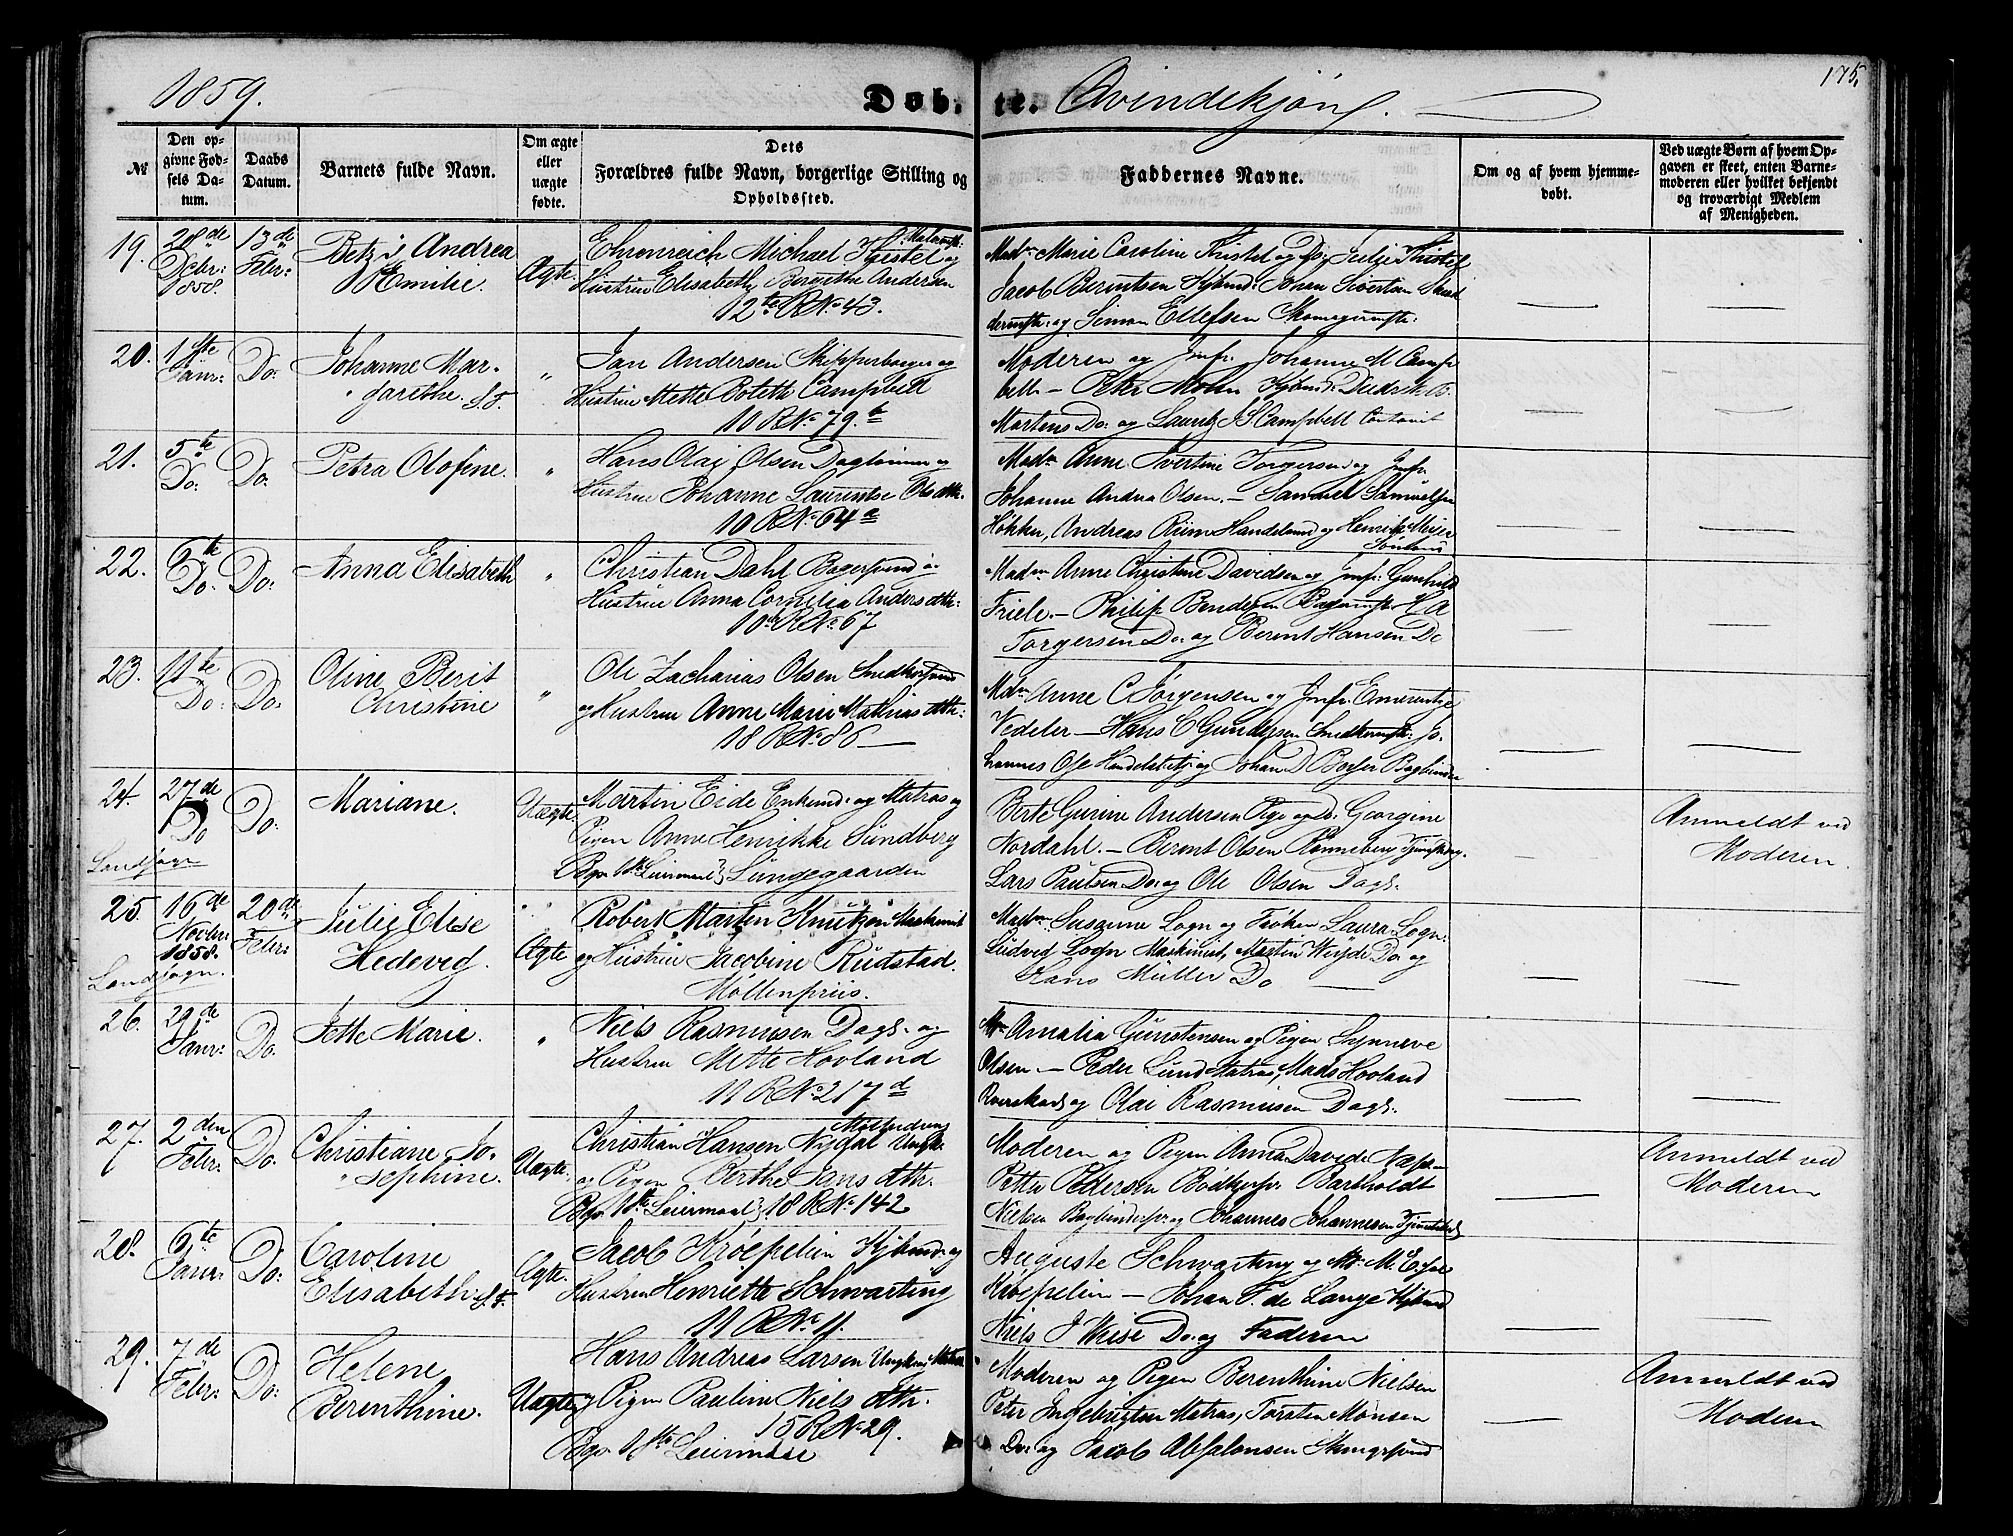 1859.
Døb-
te.
Qvindekjøn.
175.
№
Den op-
givne Fød-
sels Da-
tum.
Daabs
Datum.
Barnets fulde Navn.
Om ægte
eller
uægte
fødte.
Dets
Forældres fulde Navn, borgerlige Stilling og
Opholdssted.
Faddernes Navne.
Om og af hvem hjemme-
døbt.
Ved uægte Børn af hvem Op-
gaven er skeet, enten Barne-
moderen eller hvilket bekjendt
og troværdigt Medlem
af Menigheden.
19.
28de
Debr:
1858.
13de
Febr:
Betzi Andrea
Emilie.
Ægte
Ehrenreich Michael Thistel og
Hustrue Elisabeth Bergithe Andersen
12te R No 43.
Madm Marie Caroline Thistel og Do: Julie Thistel
Jacob Berentsen Kjbmd: Johan Sivertsen
og Simon Ellefsen Skomagermstr:
20.
1ste
Janr:
Do:
Johanne Mar-
garethe.
"
Jan Andersen Skipperborger og
Hustrue Mette Boleth Campbell
10 R No 79.b
Moderen og Jmfr: Johanne M Camp
bell - Peter Mohn Kjbmd: Diedrik B.
Martens Do: og Lauritz Campbell Contorist
21.
5te
Do:
Do:
Petra Olofene.
"
Hans Olai Olsen Dagleiner og
Hustrue Johanne Laurentse Olsdtr.
10 R No 64 a
Madm Anne Ivertine Torgersen og Jmfr.
Johanne Andrea Olsen. - Samuel Samuelsen
Høkker, Andreas Riim Handelsmd og Henrik Meyer
22.
6te
Do:
Do:
Anna Elisabeth
"
Christian Dahl Bagersvend og
Hustrue Anna Cornelia Andersdtr:
10de R No 67
Madm Anne Christine Davidsen og Jmfr: Gunhild
Friele. - Philip Bendixen Bagermstr. H A
Torgersen Do: og Berent Hansen Do
23.
11te
Do:
Do:
Oline Berit
Christine
"
Ole Zacharias Olsen Snedkersvend
og Hustrue Anne Marie Mathiasdtr:
18 R No 86 —
Mdm Anne C Jørgensen og Jmfr. Emerentse
Vedeler - Hans C Gundersen Snedkermstr: Jo.
hannes Ose Handelsbetj og Johan D Beyer Bogbinder
24.
27de
Do
Do:
Mariane.
Uægte
Martin Eide Enkemd: og Matros og
Pigen Anne Henrikke Sundberg
Bgs 1ste Leiermaal} Lungegaarden
Berte Gurine Andersen Pige og do: Georgine
Nordahl. - Berent Olsen Ronneberg Tjenstkarl.
Lars Paulsen Do: og Ole Olsen Dags.
Anmeldt ved
Moderen.
Landsogn
25.
16de
Novbr:
1858.
20de
Febr:
Julie Elise
Hedevig.
Ægte
Robert Martin Knutzen Maskinist
og Hustrue Jacobine Rudstad.
Møllenpriis.
Madm Susanne Sogn og Frøken Laura Sogn.
Ludvig Sogn Maskinist, Martin Weyde Do: og
Hans Müller Do
Landsogn.
26.
29de
Janr:
Do:
Jette Marie.
"
Niels Rasmussen Dags. og
Hustrue Mette Hovland
11 R No 217 d
Mm Amalia Gunstensen og Pigen Synneve
Olsen - Peder Lund Matros, Mads Hovland
og Olai Rasmussen Dags.
27.
2den
Febr:
Do:
Christiane Jo-
sephine.
Uægte.
Christian Hansen Nydal
og Pigen Berthe Jansdtr.
Bgs 1ste Leiermaal} 18 R No 142
Moderen og Pigen Anna Davida Næss
Petter Pedersen Bødkersv. Bartholdt
Nielsen Bogbindersv: og Johannes Johannesen Tjenestekarl
Anmeldt ved
Moderen
28.
6te
Janr:
Do:
Caroline
Elisabeth
Ægte.
Jacob Krøepelien Kjbmd. og
Hustrue Henriette Schwarting
11 R No 11.
Auguste Schwarting og Mm M. E.
Krøepelin - Johan F. de Lange Kjbmd
Niels J Weise Do: og Faderen
29.
7de
Febr:
Do:
Helene
Berenthine.
Uægte
Hans Andreas Larsen Ungkarl Matros
og Pigen Pauline Nielsdtr.
15 R No 29.
Bgs 1ste Leiermaal
Moderen og Pigen Berenthine Nielsen
Peter Ingebrigtsen Matros, Torsten Monsen
Do: og Jacob Absalonsen
Anmeldt ved
Moderen